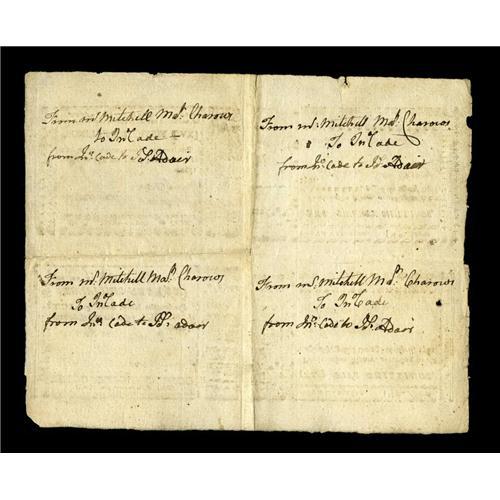 From mr. Mitchell Mdr. Charows
To Jno. Cade
from Jno. Cade to Js. Adair
From mr. Mitchell Mdr. Charows
To Jno. Cade
from Jno. Cade to Js. Adair
From mr. Mitchell Mdr. Charows
To Jno. Cade
from Jno. Cade to Js. adair
From mr. Mitchell Mdr. Charows
To Jno. Cade
from Jno. Cade to Js. Adair